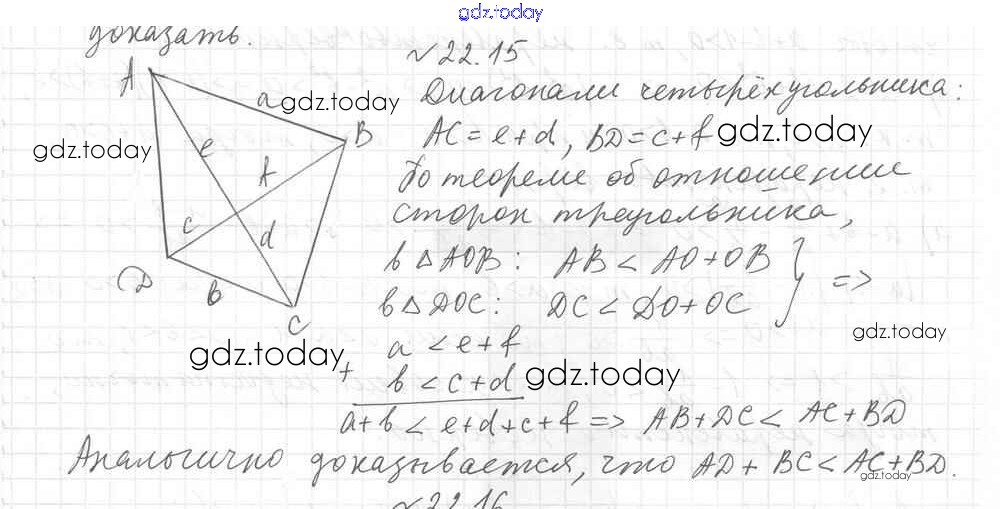 gdz.today
доказать.
№22.15
A
a
gdz.today
B
gdz.today
e
f
c
d
D
b
C
gdz.today
Диагонали четырёхугольника:
AC = e+d, BD = c+f gdz.today
По теореме об отношении
сторон треугольника,
в △AOB: AB < AO+OB
в △DOC: DC < DO+OC } =>
gdz.today
a < e+f
+ b < c+d gdz.today
a+b < e+d+c+f => AB+DC < AC+BD
Аналогично доказывается, что AD+BC < AC+BD.
gdz.today
№22.16